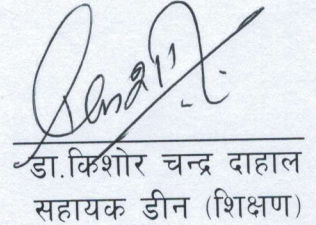 डा.किशोर चन्द्र दाहाल
सहायक डीन (शिक्षण)